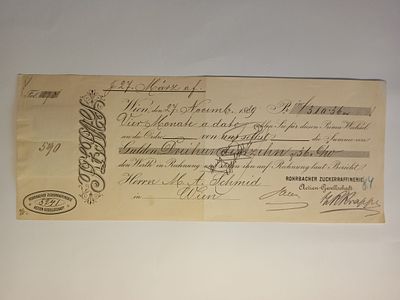 p 27. März a.f.
Wien, den 27. Novemb. 1889 P. fl 310.36
Vier Monate a dato zahlen Sie für diesen Prima Wechsel
an die Ordre von uns selbst die Summe von
590
Gulden Dreihundertzehn, 36
den Werth in Rechnung und stellen ihn auf Rechnung laut Bericht.
Herrn M. A. Schmid
in Wien
ROHRBACHER ZUCKERRAFFINERIE
Actien-Gesellschaft
84
ROHRBACHER ZUCKERRAFFINERIE
5241
ACTIEN-GESELLSCHAFT